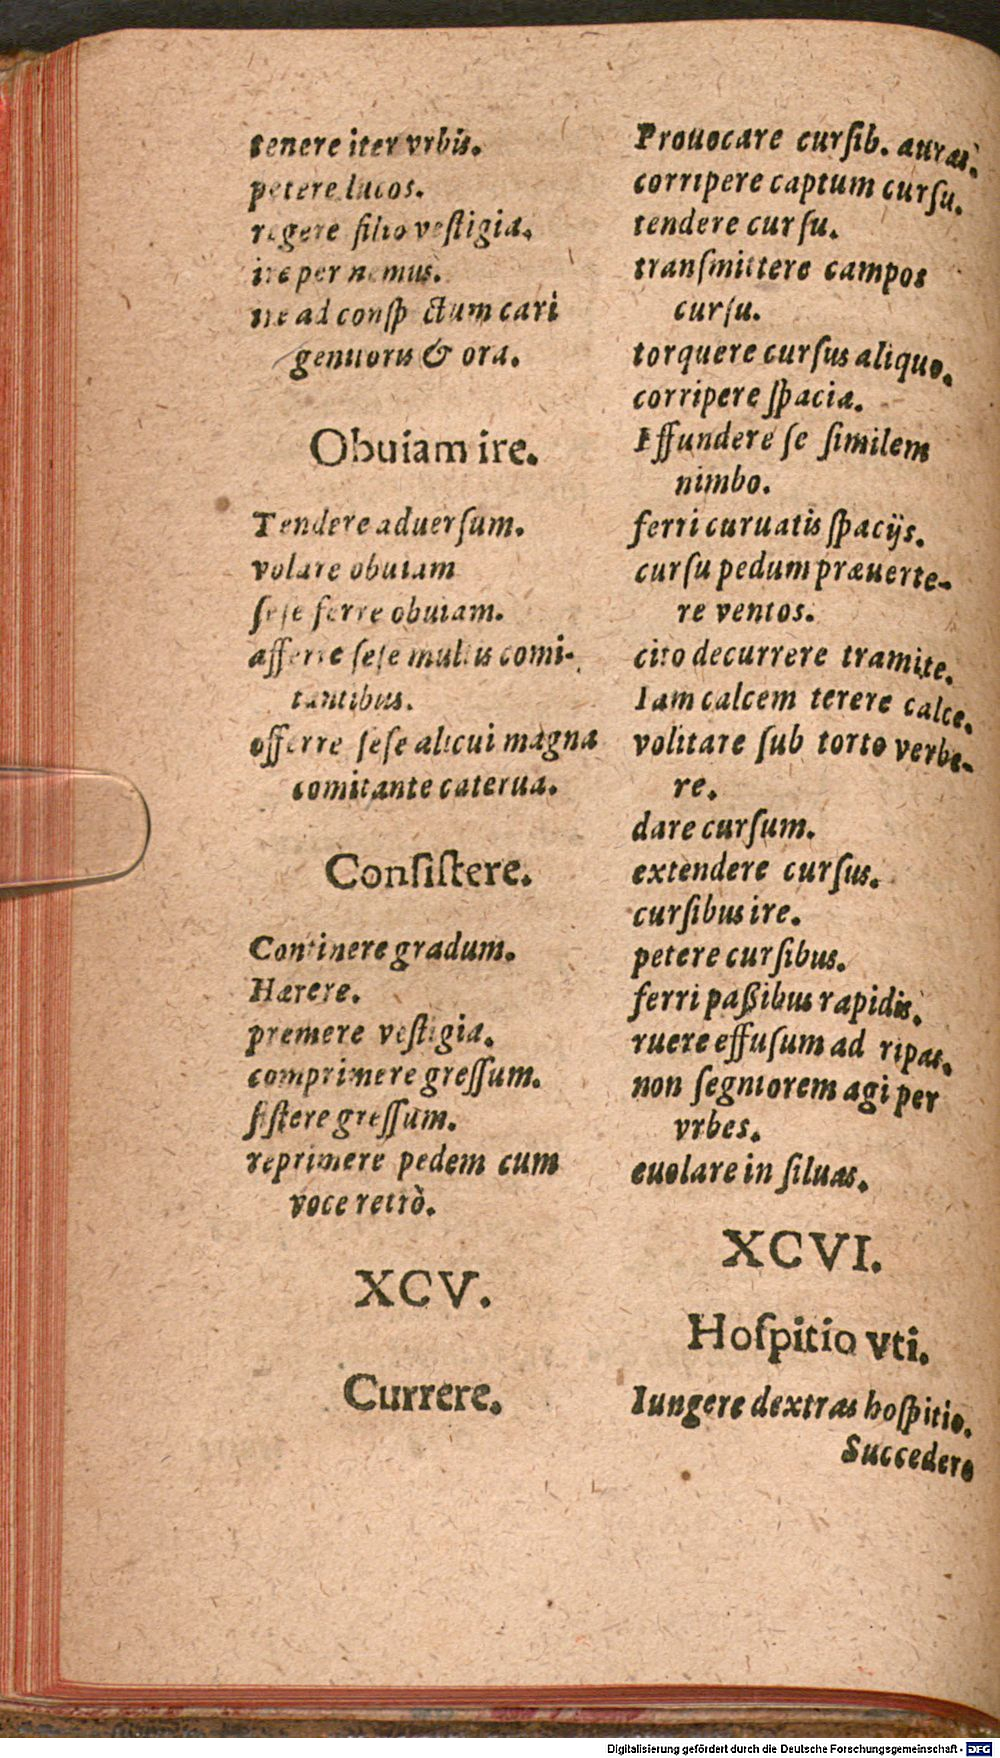 tenere iter vrbis.
petere lucos.
regere filio veſtigia.
ire per nemus.
ire ad conſpectum cari
genitoris & ora.
Obuiam ire.
Tendere aduerſum.
volare obuiam
ſeſe ferre obuiam.
afferre ſeſe multis comi-
tantibus.
offerre ſeſe alicui magna
comitante caterua.
Conſiſtere.
Continere gradum.
Hærere.
premere veſtigia.
comprimere greſſum.
ſiſtere greſſum.
reprimere pedem cum
voce retrò.
XCV.
Currere.
Prouocare curſib. auras.
corripere captum curſu.
tendere curſu.
tranſmittere campos
curſu.
torquere curſus aliquo.
corripere ſpacia.
Effundere ſe ſimilem
nimbo.
ferri curuatis ſpacijs.
curſu pedum præuerte-
re ventos.
cito decurrere tramite.
Iam calcem terere calce.
volitare ſub torto verbe-
re.
dare curſum.
extendere curſus.
curſibus ire.
petere curſibus.
ferri paßibus rapidis.
ruere effuſum ad ripas.
non ſegniorem agi per
vrbes.
euolare in ſiluas.
XCVI.
Hoſpitio vti.
Iungere dextras hoſpitio.
Succedere
Digitalisierung gefördert durch die Deutsche Forschungsgemeinschaft - DFG